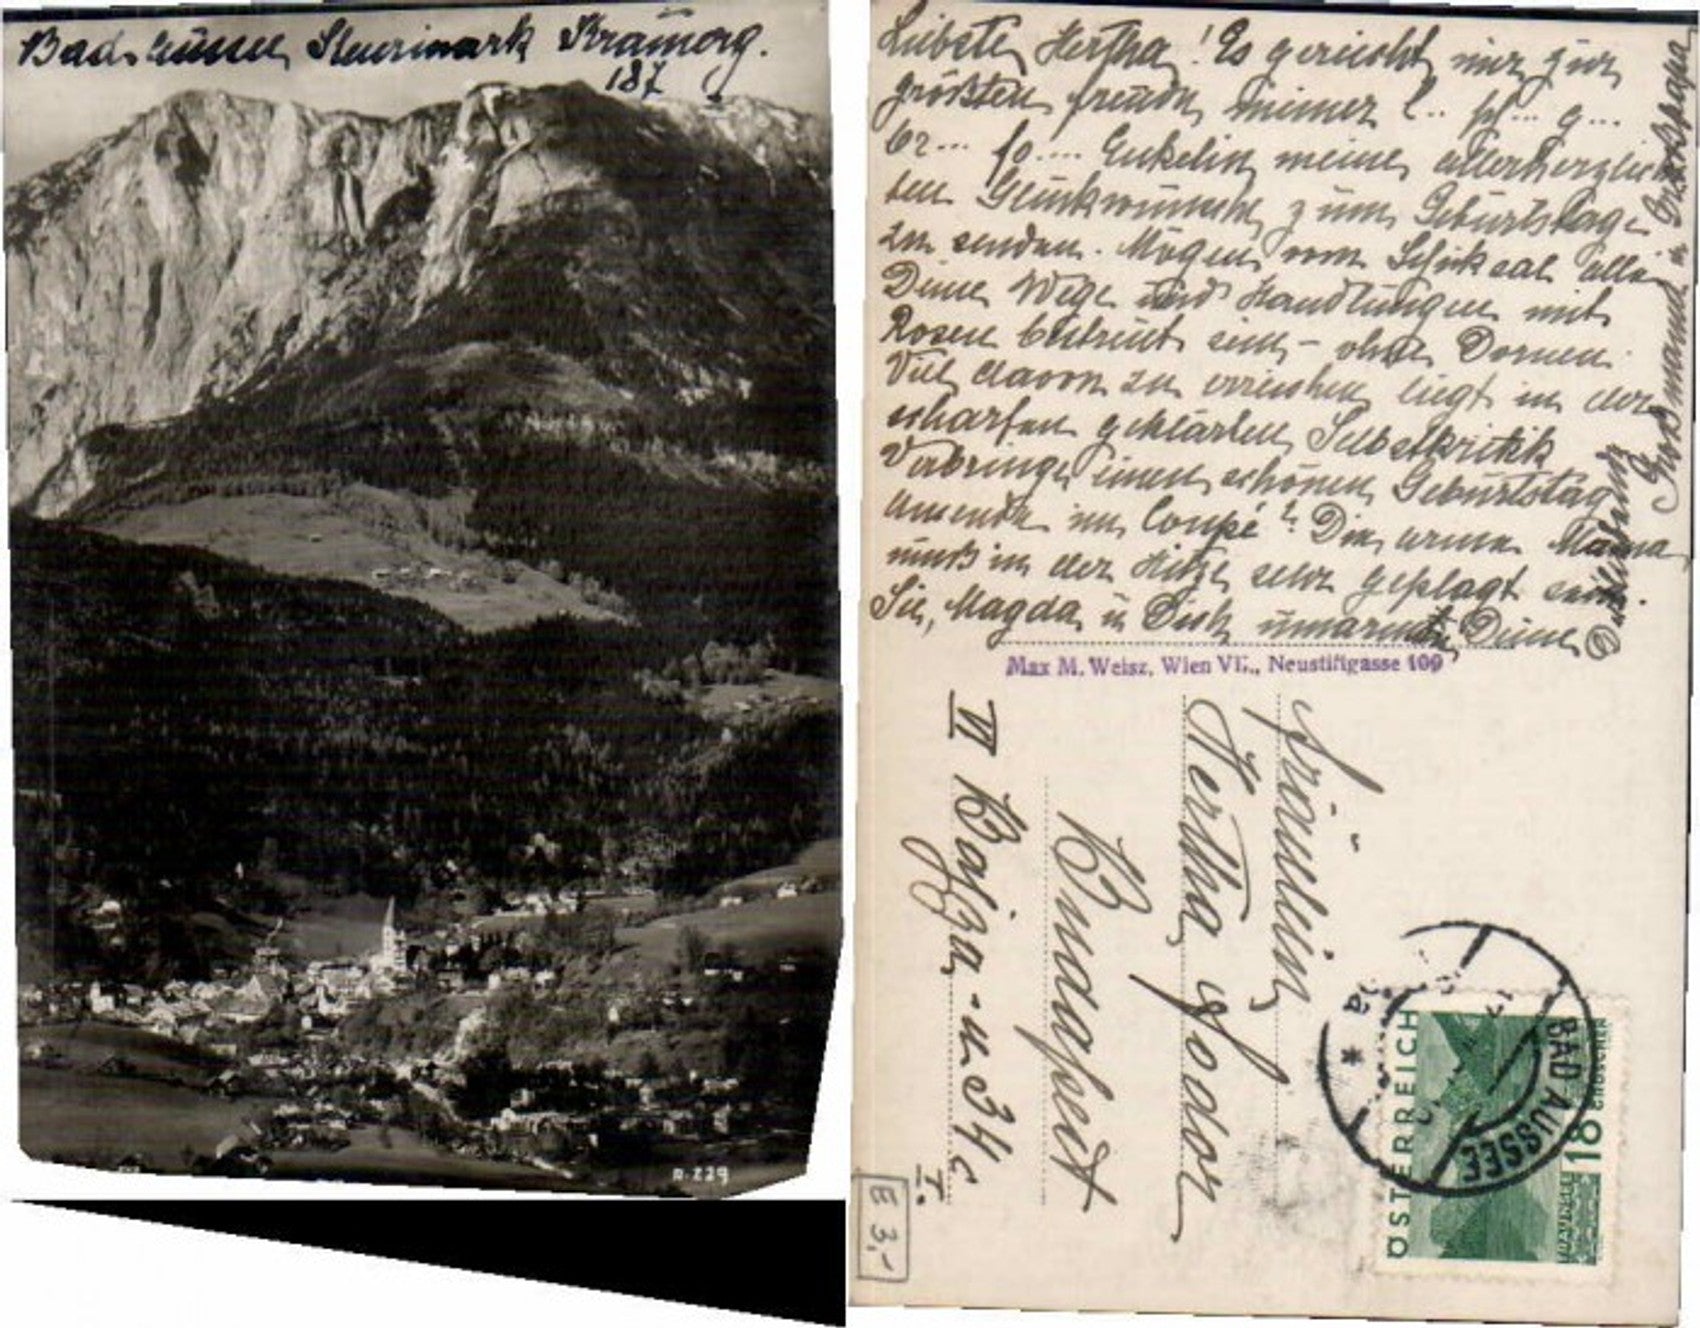 Bad Aussee Steiermark
187
D. 229
Liebste Hertha! Es gereicht mir zur
größten Freude meiner l.. pl... g...
br... so.... Enkelin meine allerherzlich
ten Glückwünsche zum Geburtstage
zu senden. Mögen vom Schicksal alle
Deine Wege und Handlungen mit
Rosen bestreut sein – ohne Dornen.
Viel davon zu erreichen liegt in der
scharfen geklärten Selbstkritik
Verbringe einen schönen Geburtstag
im Coupé? Die arme Mama
muß in der Hitze sehr geplagt sein.
Sie, Magda u Dich umarmt Deine
Dich liebende
Großmama u Großpapa
Max M. Weisz, Wien VII., Neustiftgasse 109
Fräulein
Hertha Fodor
Budapest
VI Bajza-u 34c
I.
BAD AUSSEE
ÖSTERREICH
18 GROSCHEN
TRAUNSEE
E 3,-